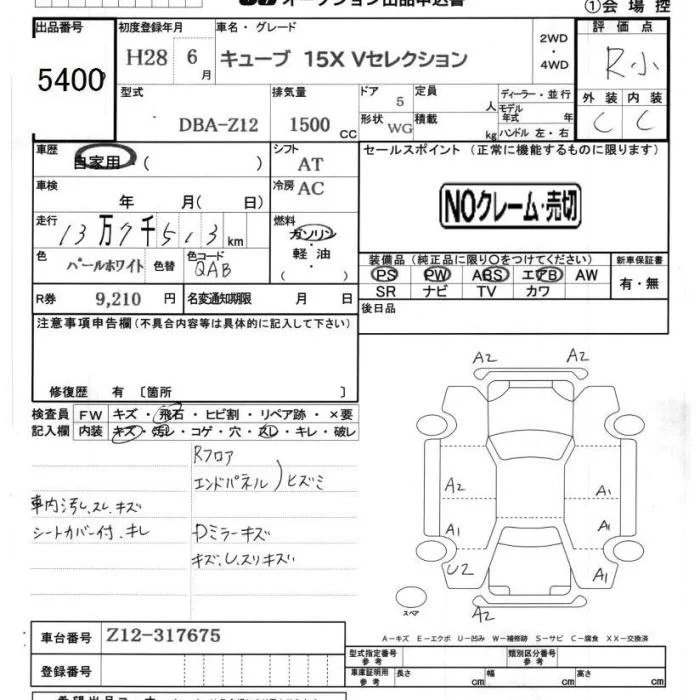 オークション出品申込書
①会場控
出品番号
5400
初度登録年月
H28 6月
車名・グレード
キューブ 15X Vセレクション
2WD
・
4WD
評価点
R小
外装 内装
C C
型式
DBA-Z12
排気量
1500 CC
ドア 5
形状 WG
定員 人
積載 kg
ディーラー・並行
モデル年式 年
ハンドル 左・右
車歴
自家用 ( )
シフト
AT
車検
年 月( 日)
冷房 AC
走行
13万7千513km
燃料
ガソリン
・
軽油
( )
色
パールホワイト
色替
色コード
QAB
R券 9,210 円
名変通知期限 月 日
セールスポイント (正常に機能するものに限ります)
NOクレーム・売切
装備品 (純正品に限り○をつけてください)
PS PW ABS エアB AW
SR ナビ TV カワ
新車保証書
有・無
後日品
注意事項申告欄(不具合内容等は具体的に記入して下さい)
修復歴 有 〔箇所 〕
検査員記入欄
FW キズ・飛石・ヒビ割・リペア跡・×要
内装 キズ・汚レ・コゲ・穴・スレ・キレ・破レ
Rフロア
エンドパネル ) ヒズミ
車内汚し、スレ、キズ
シートカバー付、キレ
Dミラーキズ
キズ、U、スリキズ
A2 A2
A2 A1
A1 A1
U2 A1
A2
スペア
A-キズ E-エクボ U-凹み W-補修跡 S-サビ C-腐食 XX-交換済
車台番号 Z12-317675
登録番号
型式指定番号
参考
類別区分番号
参考
車庫証明用
参考
長さ cm 幅 cm 高さ cm
希望出品コーナー